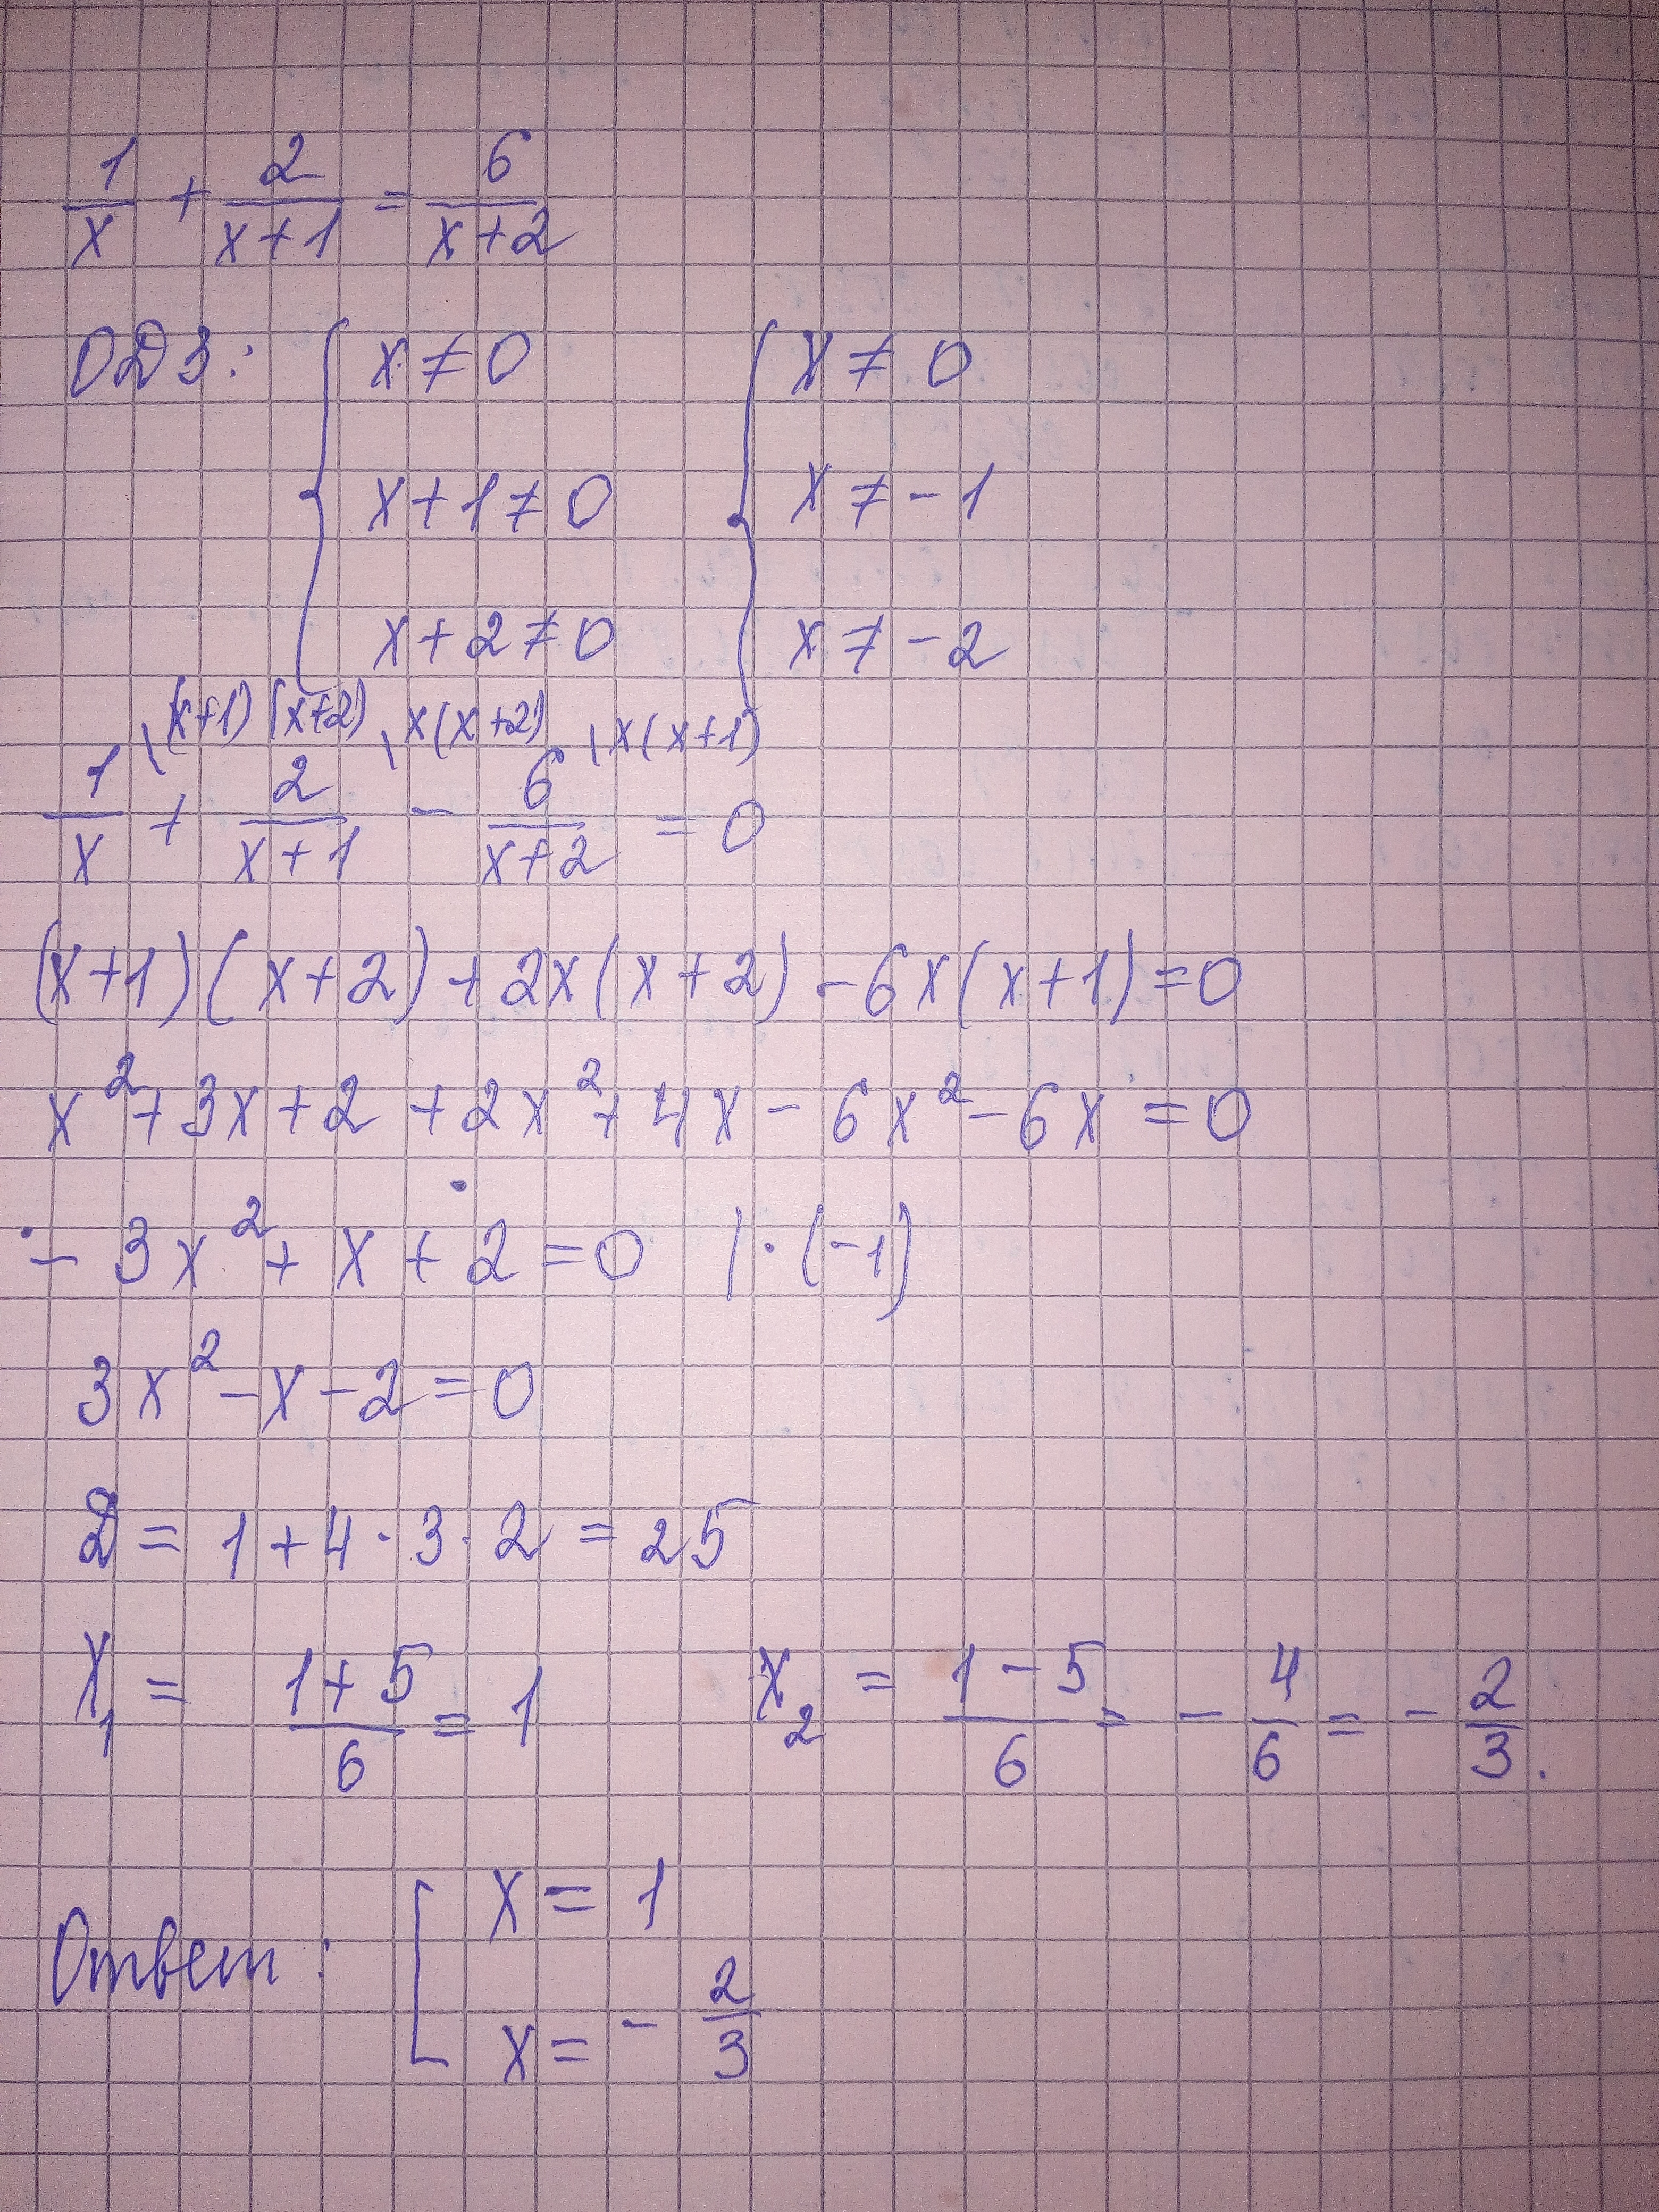 1/x + 2/(x+1) = 6/(x+2)
ОДЗ: { x ≠ 0 { x ≠ 0
x+1 ≠ 0 x ≠ -1
x+2 ≠ 0 x ≠ -2
\(x+1)(x+2) \x(x+2) \x(x+1)
1/x + 2/(x+1) - 6/(x+2) = 0
(x+1)(x+2)+2x(x+2)-6x(x+1)=0
x²+3x+2+2x²+4x-6x²-6x=0
-3x²+x+2=0 |·(-1)
3x²-x-2=0
D = 1+4·3·2 = 25
x₁ = (1+5)/6 = 1 x₂ = (1-5)/6 = -4/6 = -2/3.
Ответ: [ x = 1
x = -2/3